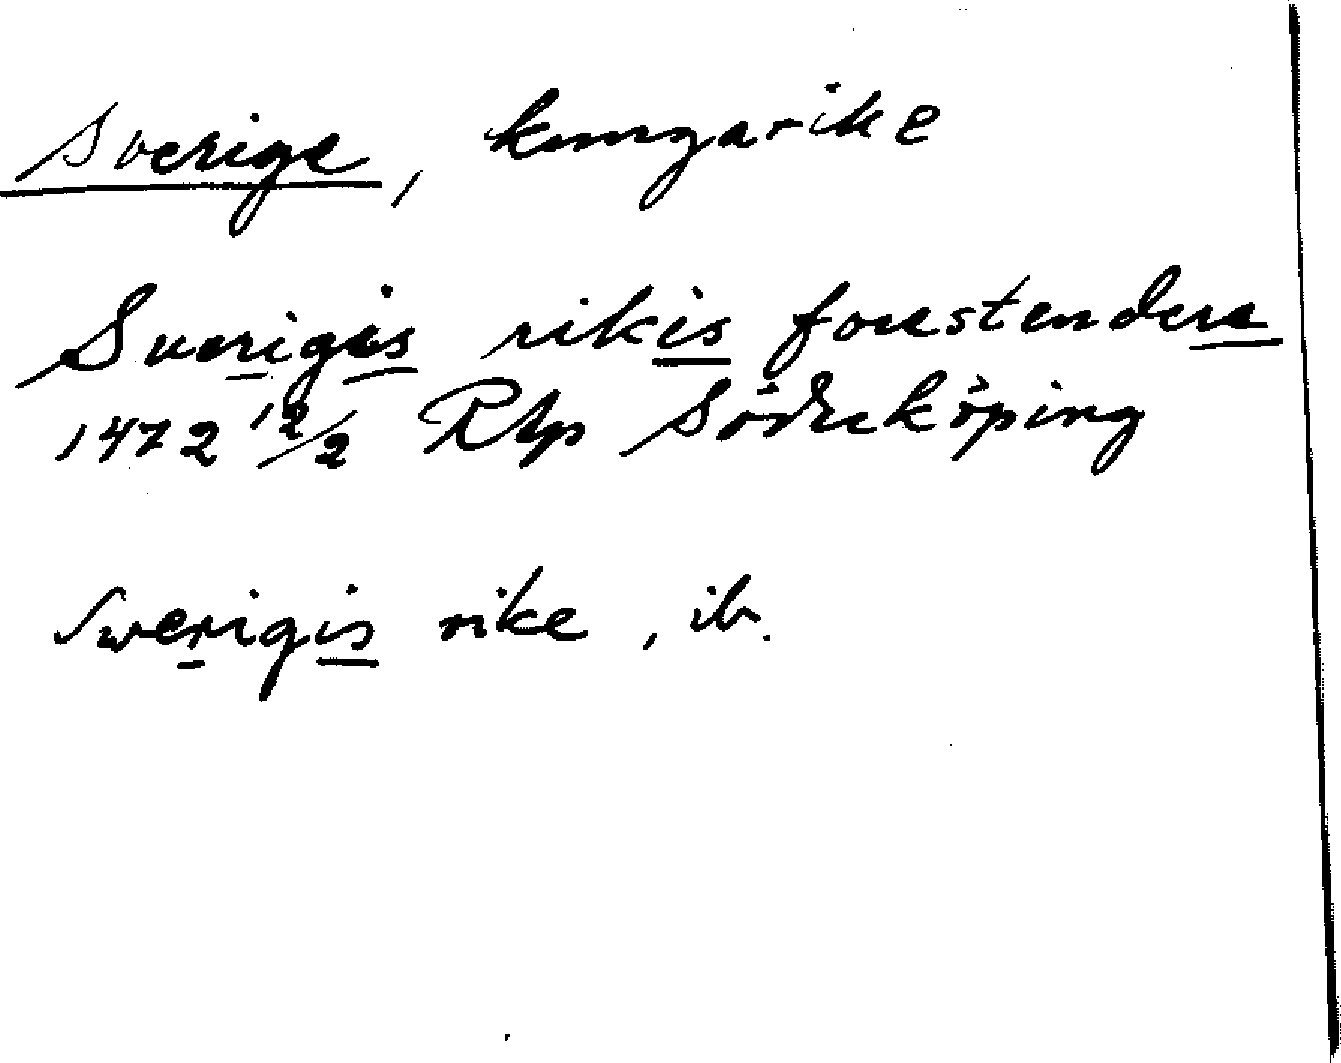 Sverige, kungarike
Sverigis rikis forestendere
1472 12/2 RAp Söderköping
Swerigis rike, ib.